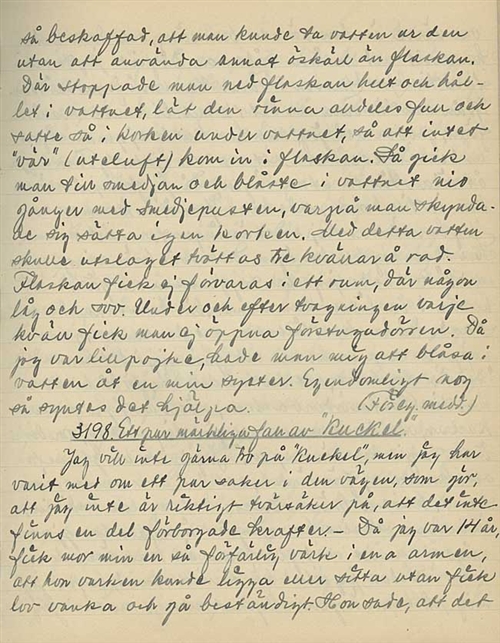 så beskaffad, att man kunde ta vatten ur den
utan att använda annat öskärl än flaskan.
Där stoppade man ned flaskan helt och hål-
let i vattnet, lät den rinna alldeles full och
satte så i korken under vattnet, så att intet
"vär" (uteluft) kom in i flaskan. Så gick
man till smedjan och blåste i vattnet nio
gånger med smedjepusten, varpå man skynda-
de sig sätta igen korken. Med detta vatten
skulle utslaget tvättas tre kvänar å rad.
Flaskan fick ej förvaras i ett rum, där någon
låg och sov. Under och efter tvagningen varje
kväll fick man ej öppna förstugudörren. Då
jag var lillpojke, bade man mig att blåsa i
vatten åt en min syster. Egendomligt nog
så syntes det hjälpa. (Föreg. medd.)
3198. Ett par märkliga fall av "kuckel".
Jag vill inte gärna tro på "kuckel", men jag har
varit med om ett par saker i den vägen, som gör,
att jag inte är riktigt tvärsäker på, att det inte
finns en del förborgade krafter. – Då jag var 14 år,
fick mor min en så förfärlig värk i ena armen,
att hon varken kunde ligga eller sitta utan fick
lov vanka och gå beständigt. Hon sade, att det